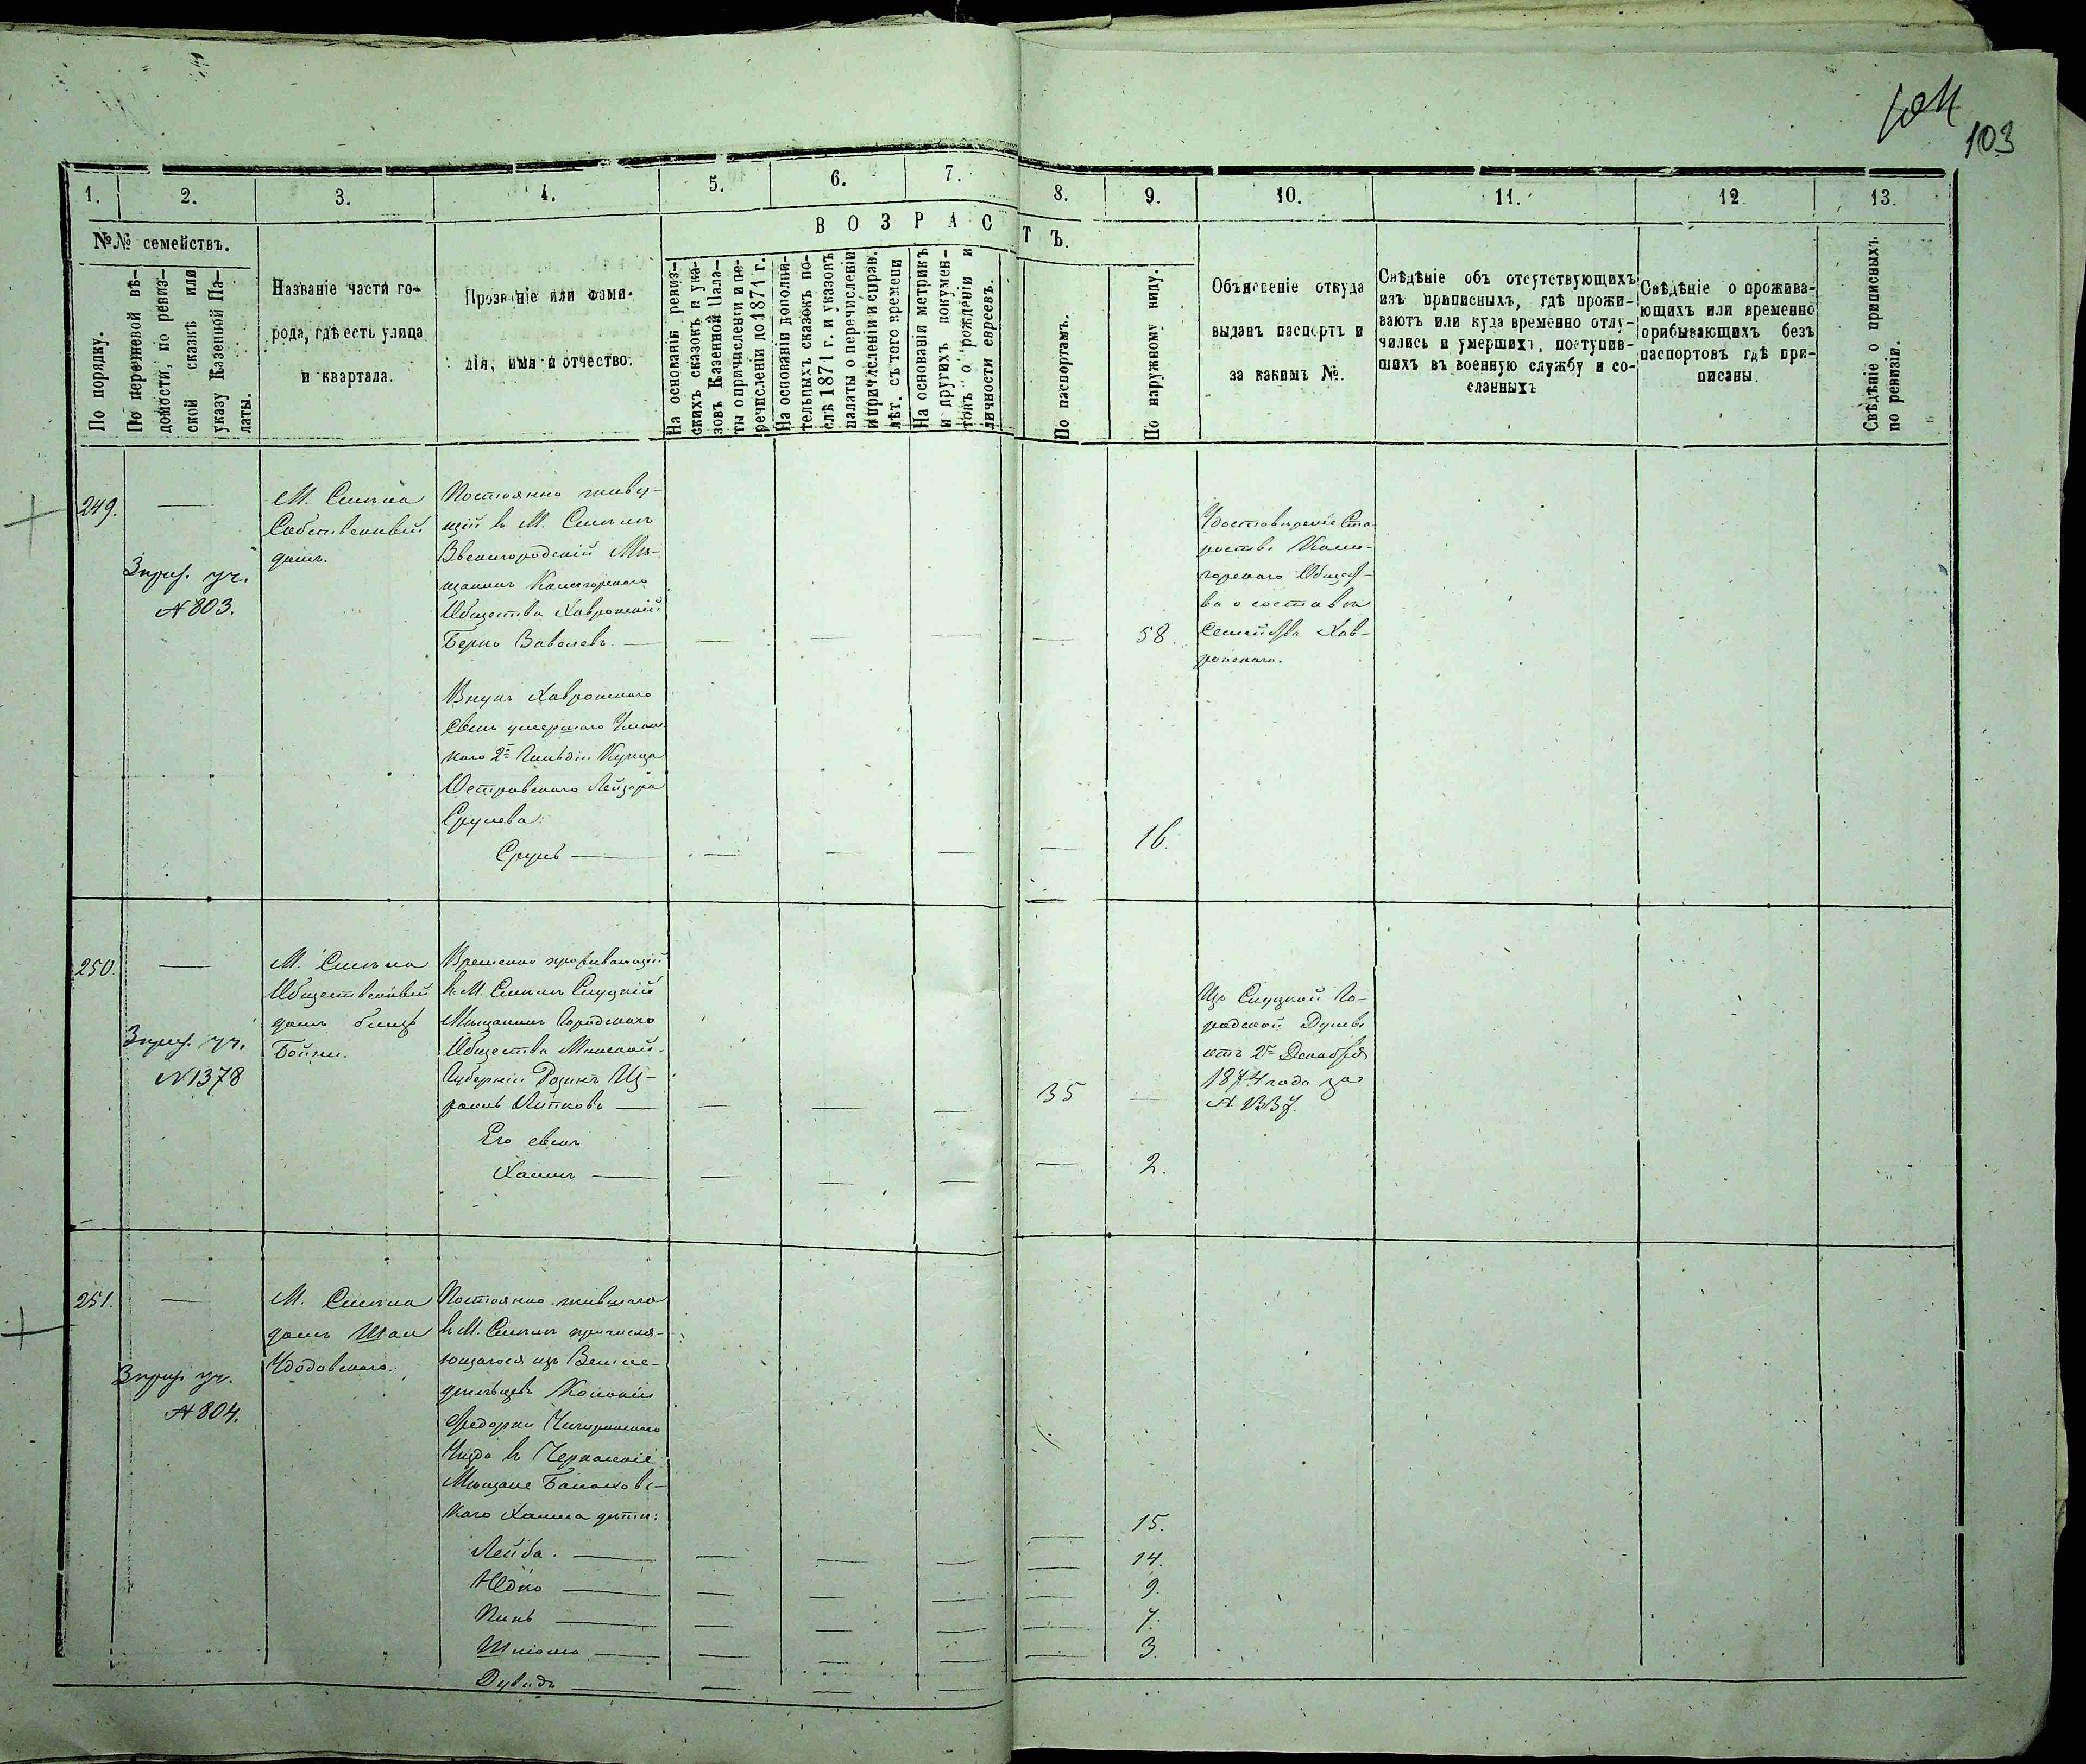 103
1.
2.
3.
4.
5.
6.
7.
8.
9.
10.
11.
12
13.
№№ семействъ.
ВОЗРАСТЪ.
По порядку.
По перечневой вѣ-
домости, по ревиз-
ской сказкѣ или
указу Казенной Па-
латы.
Названіе части го-
рода, гдѣ есть улица
и квартала.
Прозваніе или фами-
лія, имя и отчество.
На основаніи ревиз-
скихъ сказокъ и ука-
зовъ Казенной Пала-
ты о причисленіи и пе-
речисленіи до 1871 г.
На основаніи дополни-
тельныхъ сказокъ по-
слѣ 1871 г. и указовъ
палаты о перечисленіи
и причисленіи и справ.
лѣт. съ того времени
На основаніи метрикъ
и другихъ докумен-
товъ о рожденіи и
личности евреевъ.
По паспортамъ.
По наружному виду.
Объясненіе откуда
выданъ паспортъ и
за какимъ №.
Свѣдѣніе объ отсутствующихъ
изъ приписныхъ, гдѣ прожи-
ваютъ или куда временно отлу-
чились и умершихъ, поступив-
шихъ въ военную службу и со-
сланныхъ
Свѣдѣніе о прожива-
ющихъ или временно
прибывающихъ безъ
паспортовъ гдѣ при-
писаны.
Свѣдѣніе о приписныхъ
по ревизіи.
249.
№ 803.
М. Смѣла
Собственный
домъ.
Постоянно живу-
щій въ М. Смѣлѣ
Звенигородскій Мѣ-
щанинъ
Общества Хавронскій
Берко
58
Удостовѣреніе Ста-
росты
Общест-
ва о составѣ
Семейства Хав-
ронскаго.
Внукъ Хавронскаго
сынъ умершаго Уман-
скаго 2й Гильдіи Купца
Островскаго Лейзора
Срулева:
Сруль
16.
250.
№ 1378
М. Смѣла
Общественный
домъ близъ
Бойни.
Временно проживающій
въ М. Смѣлѣ Слуцкій
Мѣщанинъ Городскаго
Общества Минской
Губерніи Розинъ Из-
раиль
35
Изъ Слуцкой Го-
родской Думы
отъ 2го Декабря
1874 года за
№ 1337.
Его сынъ
Хаимъ
2.
251.
№ 804.
М. Смѣла
домъ
Удодовскаго.
Постоянно жившаго
въ М. Смѣлѣ причисля-
ющагося изъ Земле-
дѣльцевъ Колоніи
Федорки Чигиринскаго
Уѣзда въ Черкасскіе
Мѣщане
Хаима дѣти:
Лейба.
15.
Юдко
14.
Пинь
9.
Шлиома
7.
Дувидъ
3.